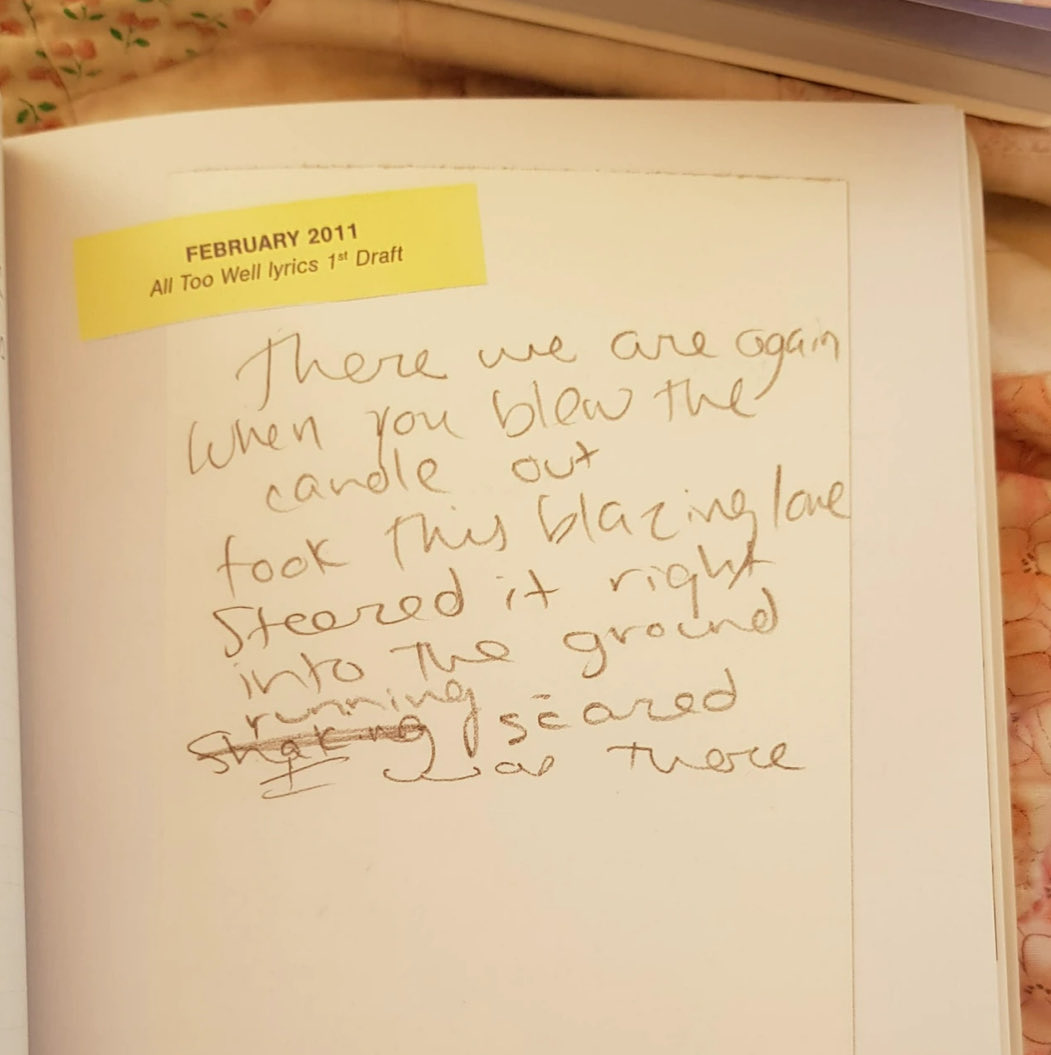 FEBRUARY 2011
All Too Well lyrics 1st Draft
There we are again
When you blew the
candle out
took this blazing love
Steered it right
into the ground
running
Shaking scared
I was there